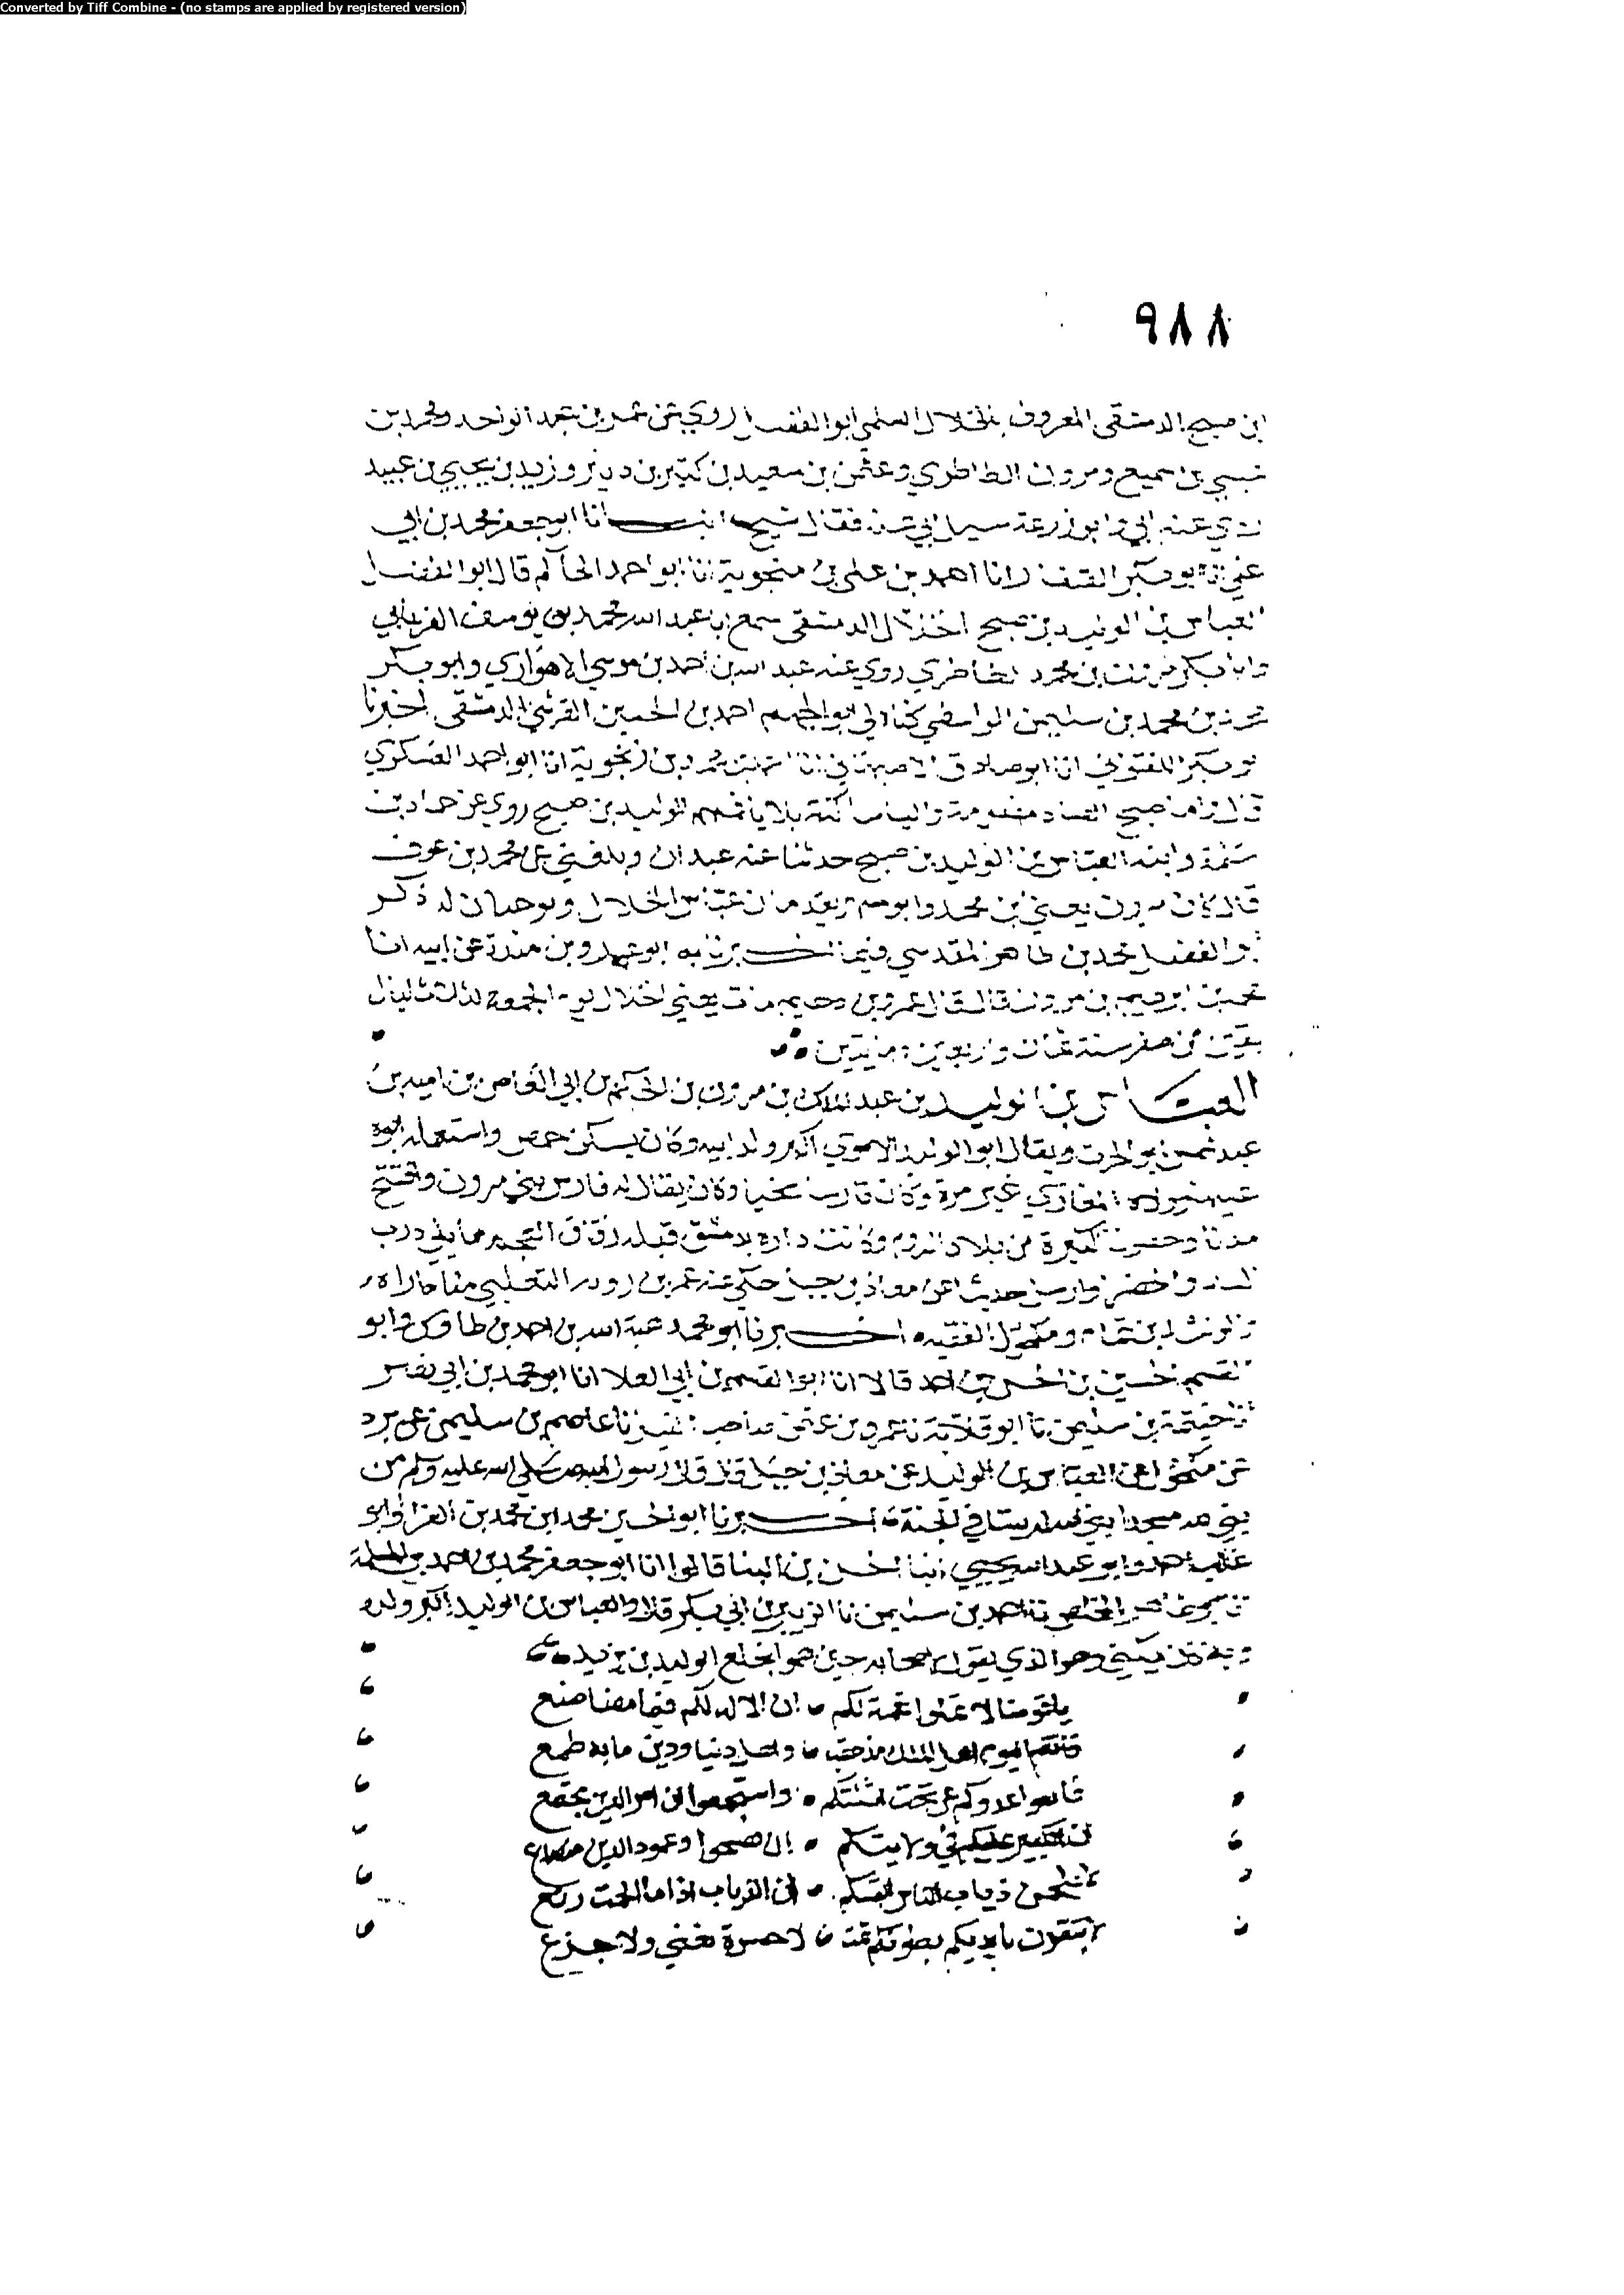 Converted by Tiff Combine - (no stamps are applied by registered version)
٩٨٨
ابن صبح الدمشقي المعروف بالخلال السلمي ابو الفضل روي عن عمر بن عبد الواحد ومحمد بن
عيسي بن سميع ومرون الطاطري وعثمن بن سعيد بن كثير بن دينر وزيد بن يحيي بن عبيد
روي عنه ابو زرعة سيل ابي عنه فقال شيخ انبانا ابو جعفر محمد بن ابي
علي انا ابو بكر الصفار انا احمد بن علي بن منجوية انا ابو احمد الحاكم قال ابو الفضل
العباس بن الوليد بن صبح الخلال الدمشقي سمع ابا عبد الله محمد بن يوسف الفريابي
وابا بكر مرون بن محمد الطاطري روي عنه عبد الله بن احمد بن موسي الاهوازي وابو بكر
محمد بن محمد بن سليمن الواسطي كناه لي ابو الجهم احمد بن الحسين القرشي الدمشقي اخبرنا
ابو بكر اللفتواني انا ابو صادق الاصبهاني انا احمد بن محمد بن زنجوية انا ابو احمد العسكري
قال واما صبح الصاد مضمومة والباء ساكنة بلا ياء فمنهم الوليد بن صبح روي عن حماد بن
سلمة وابنه العباس بن الوليد بن صبح حدثنا عنه عبدان وبلغني عن محمد بن عوف
قال كان مرون يعني بن محمد وابو مسهر يقدمان عباس الخلال ويوجبان له ذكر
ابو الفضل محمد بن طاهر المقدسي فيما اخبرنا به ابو عمرو بن مندة عن ابيه انا
محمد بن ابرهيم بن مرون قال قال عمرو بن دحيم مات يعني الخلال يوم الجمعة لثلاث ليال
بقين من صفر سنة ثمان واربعين ومايتين
العباس بن الوليد بن عبد الملك بن مرون بن الحكم بن ابي العاص بن امية بن
عبد شمس ابو الحرث ويقال ابو الوليد الاموي اكبر ولد ابيه وكان يسكن حمص واستعمله ابوه
عليها وولاه المغازي غير مرة وكان فارسا سخيا وكان يقال له فارس بني مرون وافتتح
مدنا وحصونا كثيرة من بلاد الروم وكانت داره بدمشق قبلة زقاق العجم مما يلي درب
وارسل حديثا عن معاذ بن جبل حكي عنه عمر بن
ومكحول الفقيه اخبرنا ابو محمد هبة الله بن احمد بن طاوس وابو
القسم الحسين بن احمد قالا انا ابو القسم بن ابي العلا انا ابو محمد بن ابي نصر
انا خيثمة بن سليمن نا ابو قلابة نا عمرو بن عثمن نا عاصم بن سليمن عن برد
عن مكحول عن العباس بن الوليد عن معاذ بن جبل قال قال رسول الله صلي الله عليه وسلم من
بني لله مسجدا بني الله له بيتا في الجنة اخبرنا ابو الحسين محمد ابن محمد بن الفرا وابو
غالب احمد وابو عبد الله يحيي ابنا الحسن بن البنا قالوا انا ابو جعفر محمد بن احمد بن المسلمة
انا ابو طاهر المخلص نا احمد بن سليمن نا الزبير بن ابي بكر قال والعباس بن الوليد اكبر ولده
وبه كان يكني وهو الذي يقول لاصحابه حين هموا بخلع الوليد بن يزيد
يا قومنا لا تملوا نعمة لكم ان الاله لكم فيما مضا صنع
فانتم اليوم اهل الملك مذ حقب واهل دنيا ودين ما به طمع
فانعوا عدوكم عن نحت اثلتكم واستجمعوا ان امر الدين مجتمع
ولايتكم ان تصبحوا وعمود الدين منصدع
لا تلحمن ذياب الناس انفسكم ان الذياب اذا ما الحمت رتع
لا تبقرن بايديكم بطونكم فثم لا حسرة تغني ولا جزع